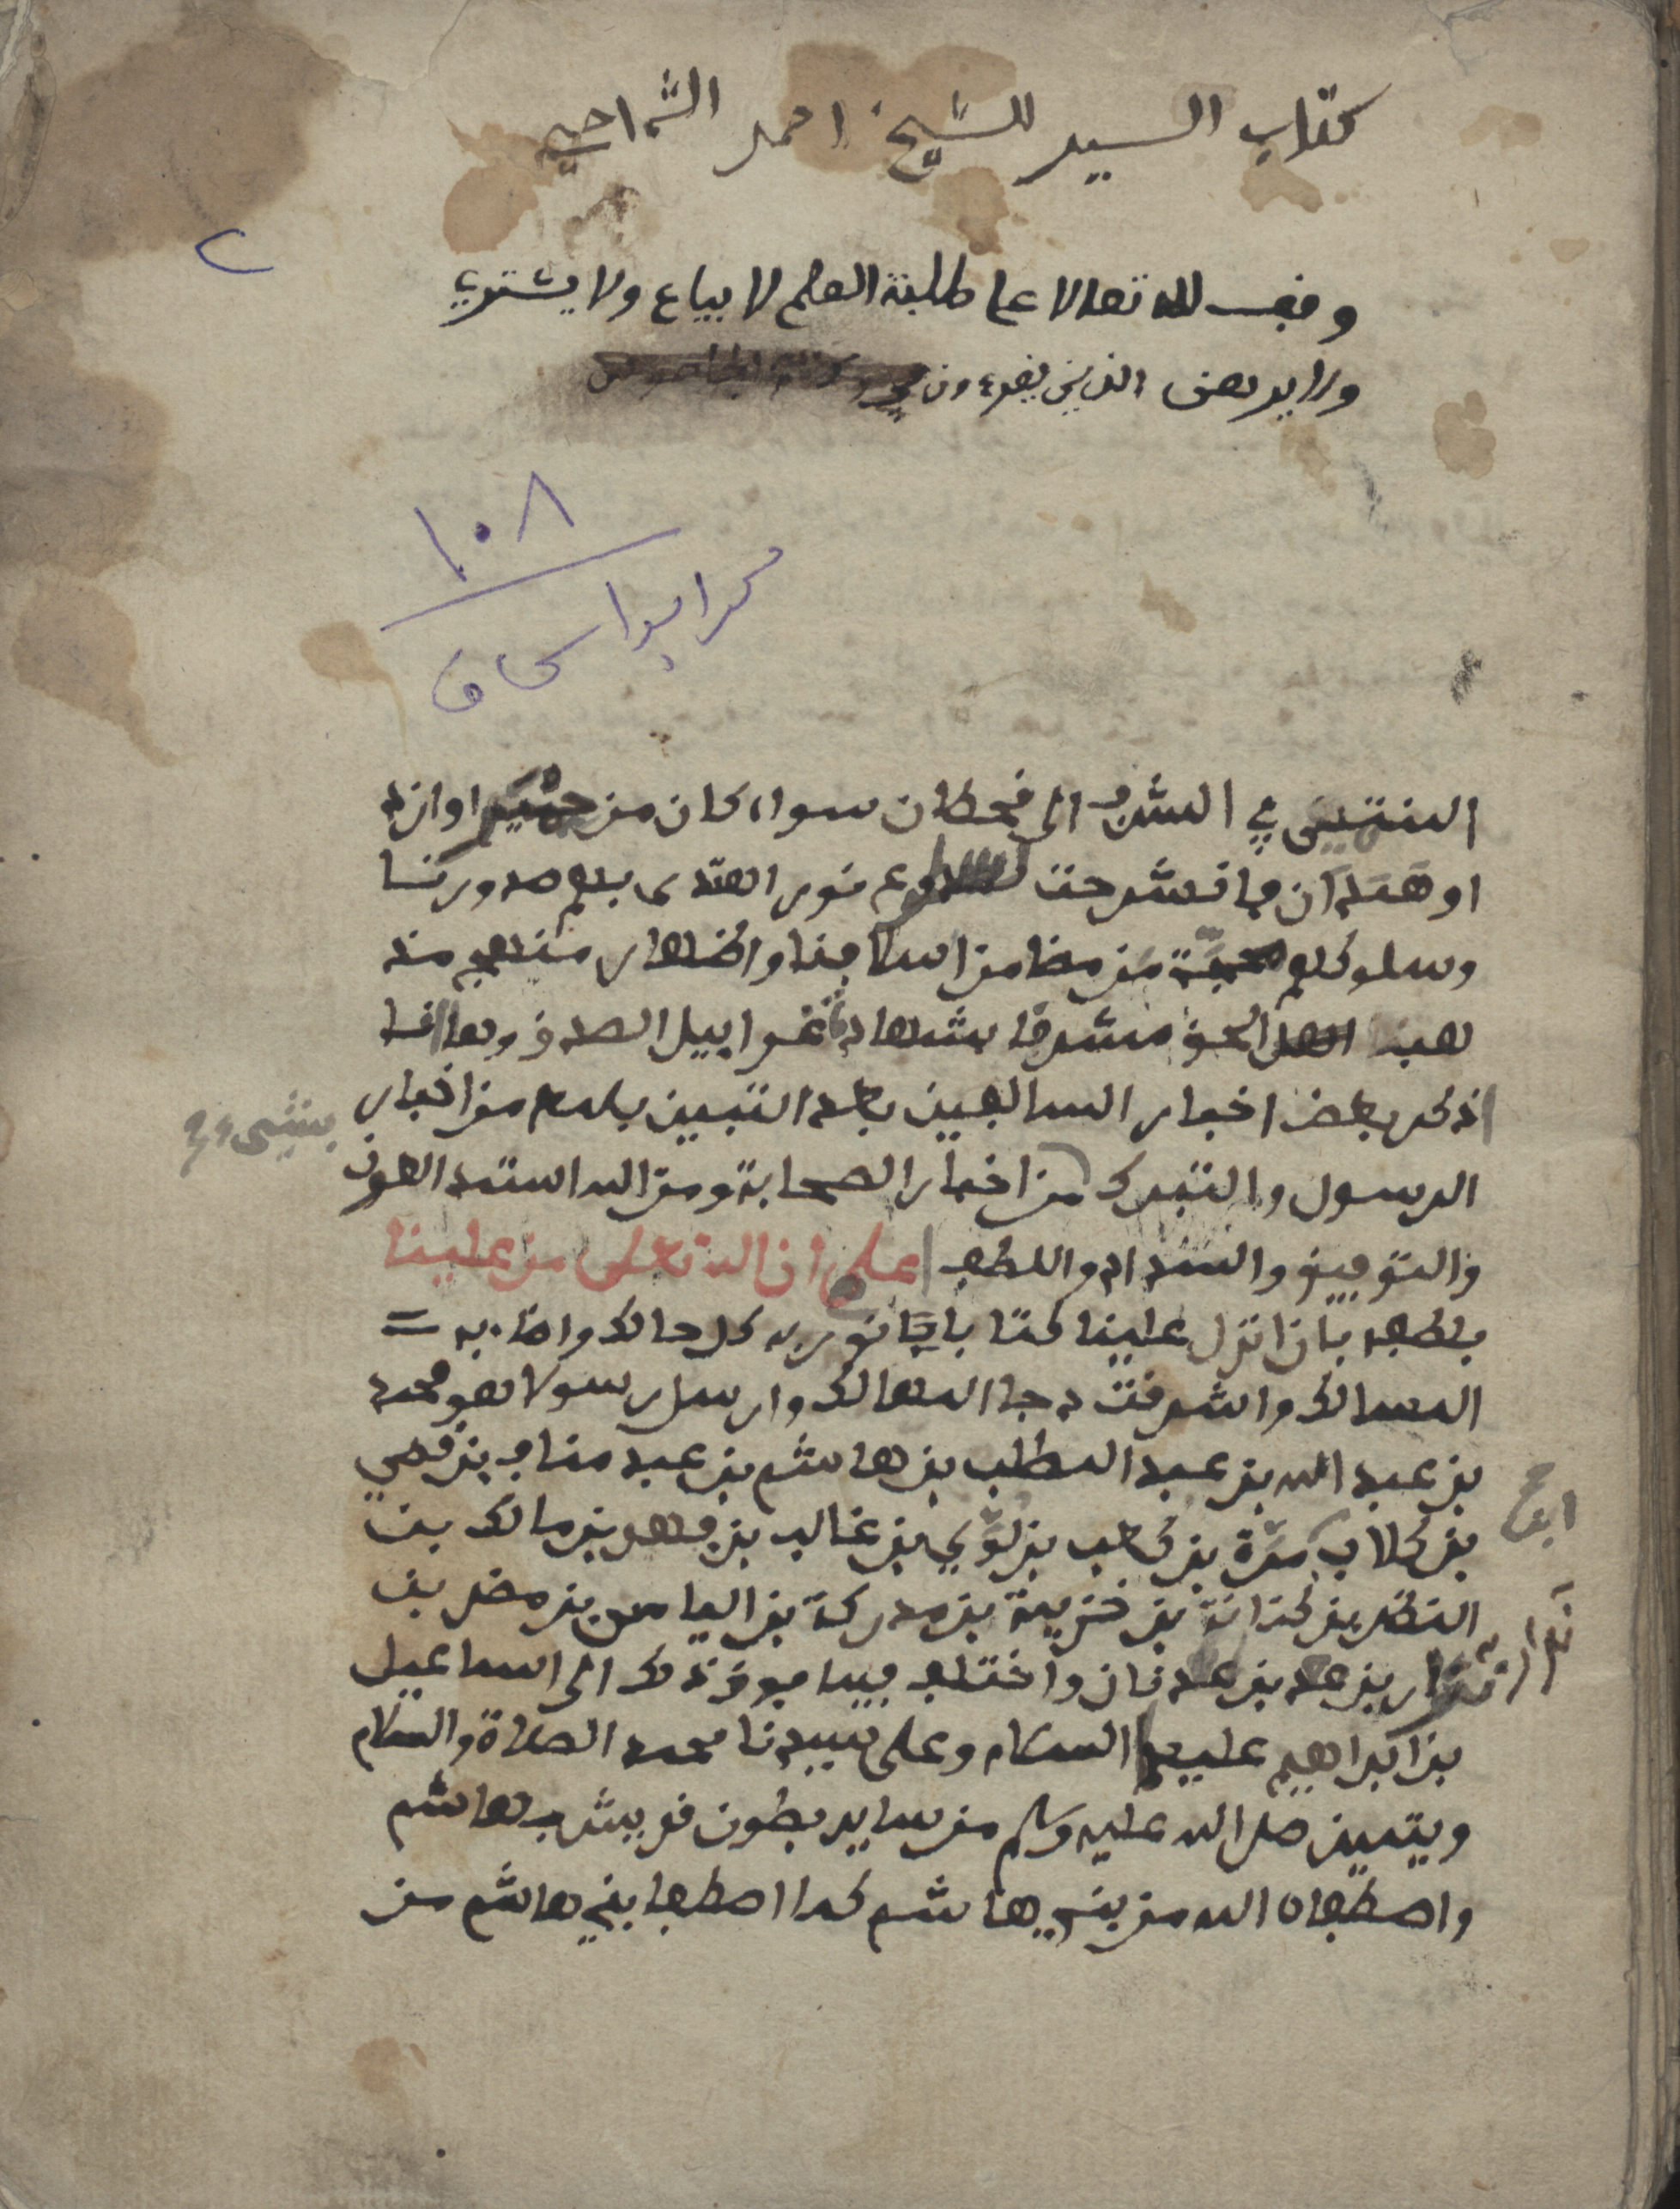 كتاب السير للشيخ احمد الشماخي
٢
وقف لله تعالا على طلبة العلم لا يباع ولا يشترى
ولا يرهن الذين يقرءون
١٠٨
المنتهى في الشرف الى قحطان سواء كان من او ازد
او همدان فانشرحت نور الهدى بهم صدورنا
وسلوكهم من مضا من اسلافنا واظهار منهم منه
الحق مشرقا بشهادة الصدق وها انا
اذكر بعض اخبار السالفين بعد التيمن بلمع من اخبار
بشيء
الرسول والتبرك من اخبار الصحابة ومن الله استمد العون
والتوفيق والسداد واللطف اعلم ان الله تعلى من علينا
بلطفه بان انزل علينا كتابا نور به كل حالك واضاء به
المسالك واشرقت دجا المهالك وارسل رسولا هو محمد
بن عبد الله بن عبد المطلب بن هاشم بن عبد مناف بن قصي
بن كلاب مرة بن كعب بن لؤي بن غالب بن فهر بن مالك بن
ابن
النظر بن كنانة بن خزيمة بن مدركة بن الياس بن مضر بن
نزار بن معد بن عدنان واختلف فيما فوق ذلك الى اسماعيل
نزار
بن ابراهيم عليهما السلام وعلى سيدنا محمد الصلاة والسلام
ويتميز صلى الله عليه وسلم من ساير بطون قريش بهاشم
واصطفاه الله من بني هاشم كما اصطفا بني هاشم من